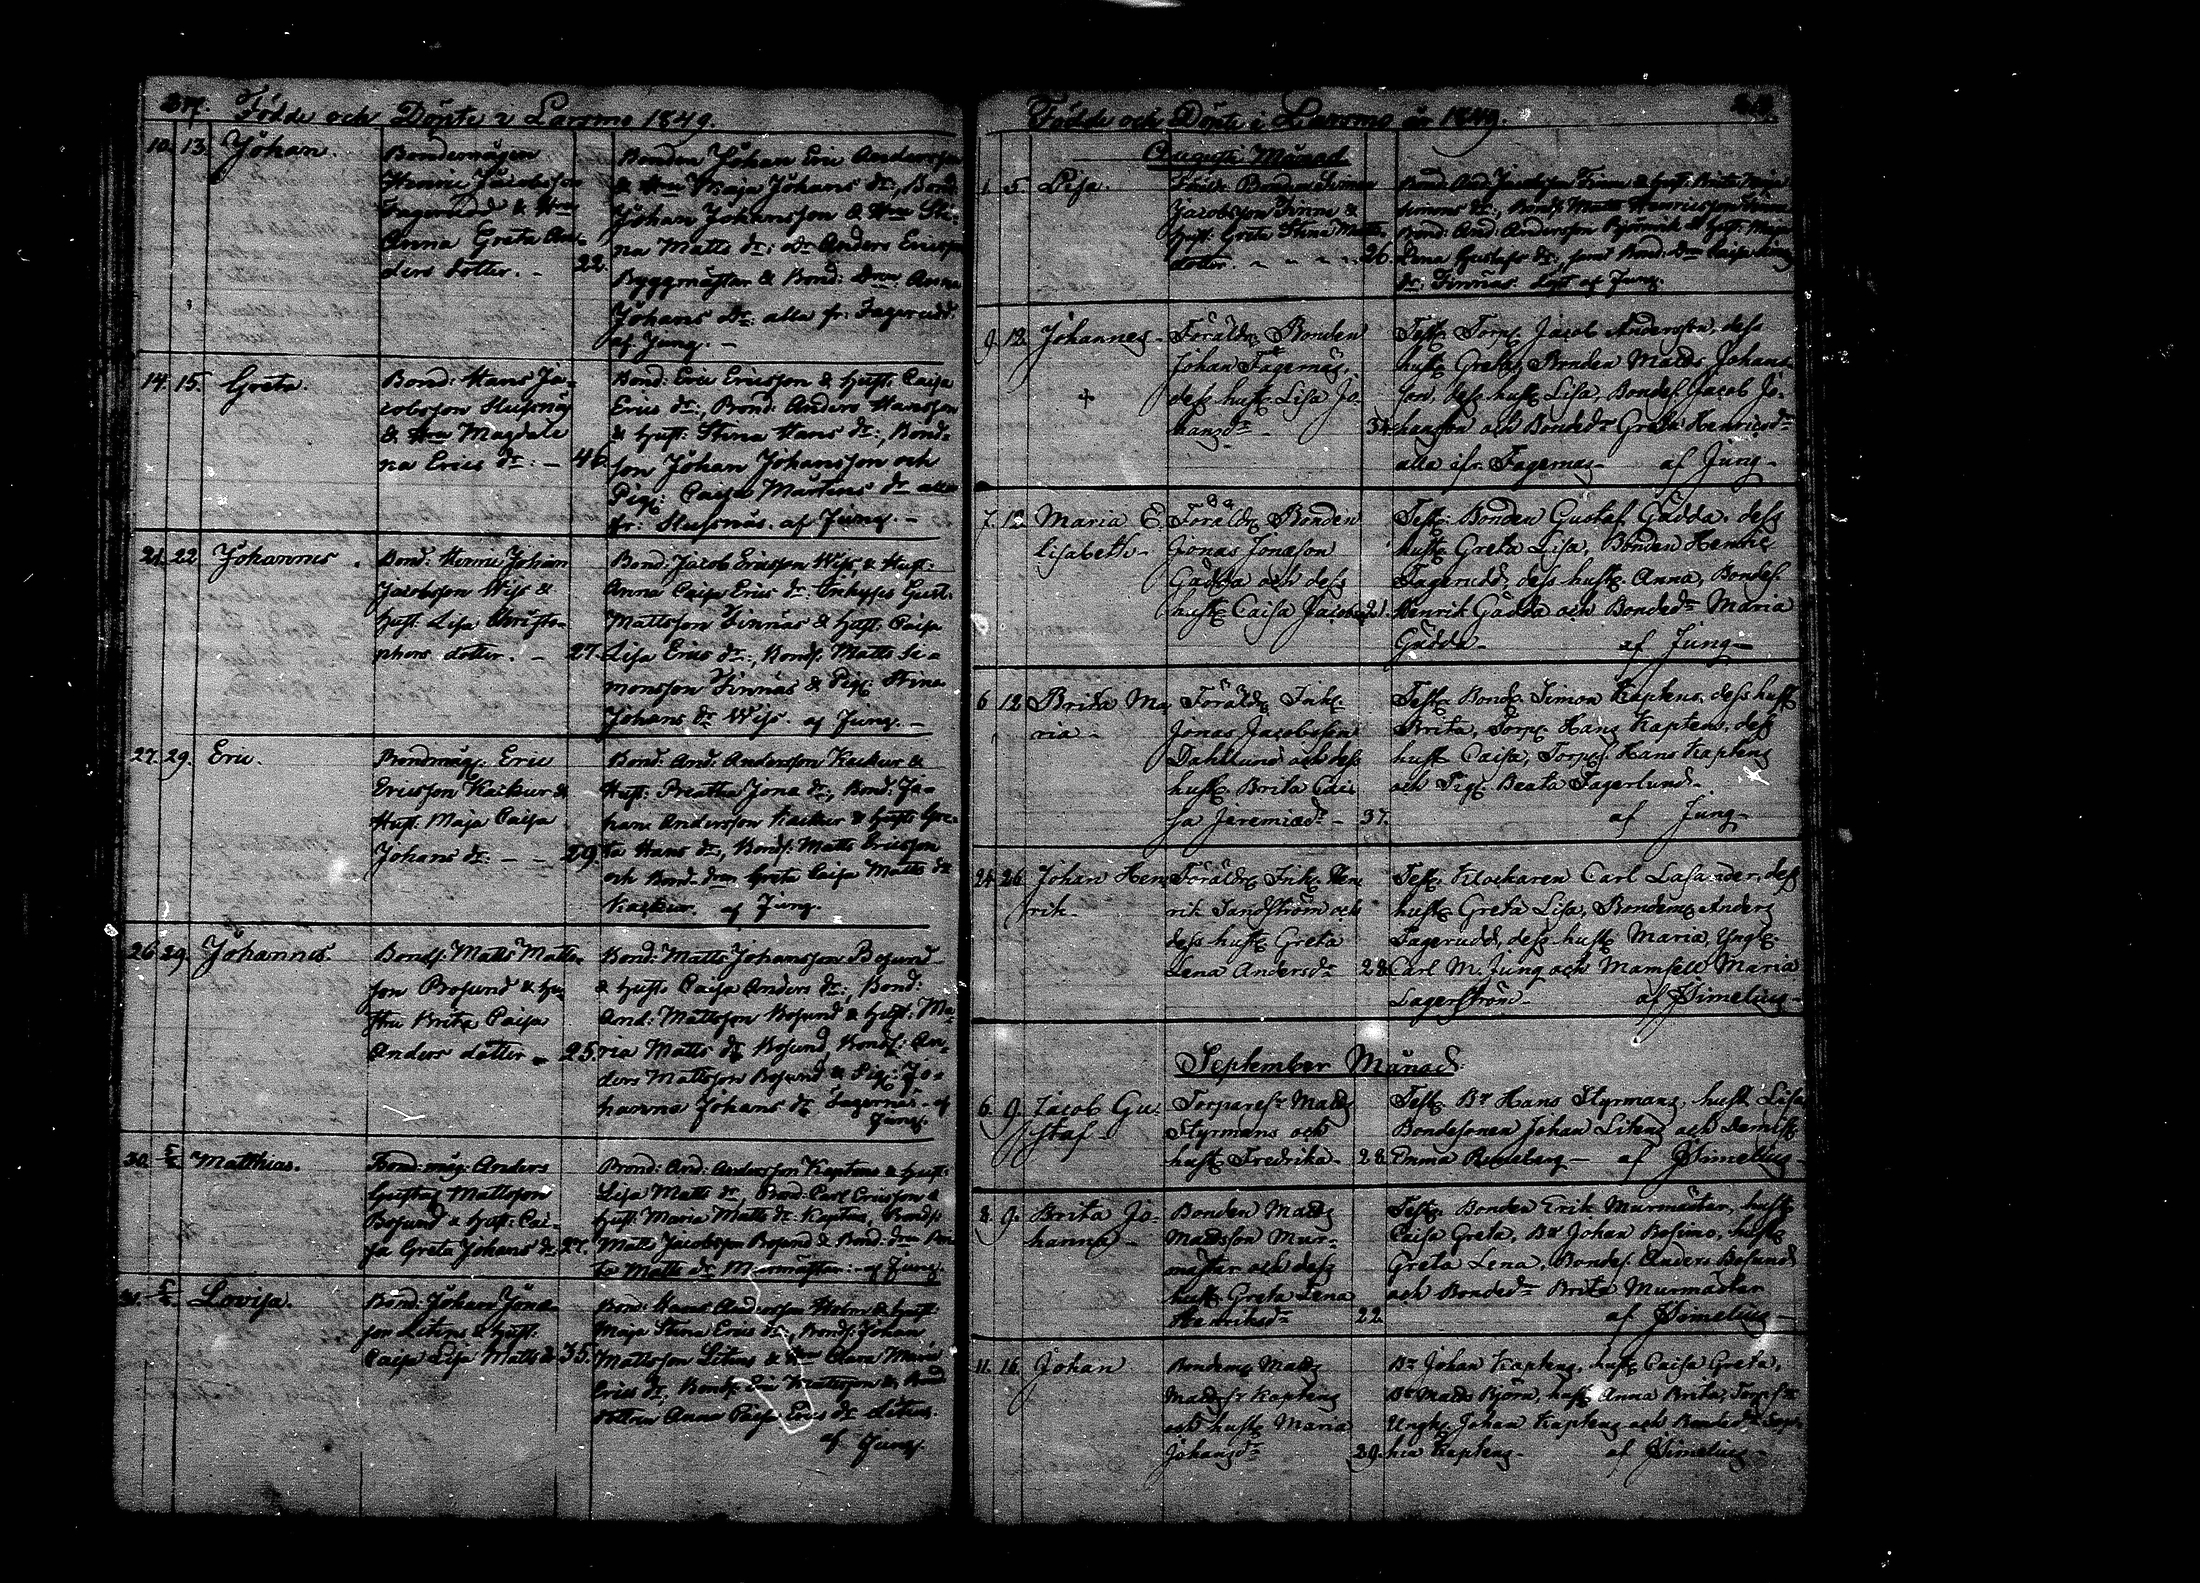 Födde och Döpte i Larsmo 1849.
10. 13. Johan.
Bondemågen
Henric Jacobsson
Fagerudd & Hru
Anna Greta An-
ders dotter. - 22.
Bonden Johan Eric Andersson
& Hru Maja Johans dr, Bond.
Johan Johansson & Hru Sti-
na Matts dr: Dr Anders Ericsson
Byggmästar & Bond: Drn Anna
Johans Dr: alla fr: Fagerudd.
af Jung. -
14. 15. Greta.
Bond: Hans Ja-
cobsson Slussnäs
& Hru Magdale
na Erics dr: - 46.
Bond: Eric Ericsson & Hust: Caisa
Erics dr:, Bond: Anders Hansson
& Hust: Stina Hans dr:, Bond-
son Johan Johansson och
Pig: Caisa Mårtens dr alla
fr: Slussnäs. af Jung. -
21. 22. Johannes.
Bond: Henric Johan
Jacobsson Wiss &
Hust. Lisa Christo-
phers dotter. - 27.
Bond: Jacob Ericsson Wiss & Hust:
Anna Caisa Erics dr: Inhyses Gust.
Mattsson Finnäs & Hust: Caisa
Lisa Erics dr:, Bonds: Matts Si-
monsson Finnäs & Pig: Stina
Johans dr Wiss. af Jung. -
27. 29. Eric.
Bondmåg: Eric
Ericsson Kackur &
Hust: Maja Caisa
Johans dr: - - 29.
Bond: And: Andersson Kackur &
Hust: Breatha Jona dr:, Bond: Jo-
han Andersson Kackur & Hust: Gre-
ta Hans dr:, Bonds: Matts Ericsson
och Bond-drn Greta Caisa Matts dr
Kackur. af Jung.
26. 29. Johannes.
Bonds: Matts Matts-
son Bosund & Hu
stru Brita Caisa
Anders dotter - 25.
Bond: Matts Johansson Bosund
& Hust: Caisa Anders dr:, Bond:
And: Mattsson Bosund & Hust: Ma-
ria Matts dr Bosund, Bonds: An-
ders Mattsson Bosund & Pig: Jo-
hanna Johans dr Fagernäs. af
Jung.
30. Matthias.
Bond:måg: Anders
Gustaf Mattsson
Bosund & Hust: Cai-
sa Greta Johans dr 27.
Bond: And: Andersson Kaptens & Hust:
Lisa Matts dr, Bond: Carl Ericsson &
Hust: Maria Matts dr: Kaptens, Bonds:
Matts Jacobsson Bosund & Bond-drn
Matts dr Murmästar: af Jung.
31. Lovisa.
Bond: Johan Jona-
son Litens & Hust:
Caisa Lisa Matts dr 35.
Bond: Hans Andersson Holm & Hust:
Maja Stina Erics dr:, Bonds: Johan
Mattsson Litens & Hru Clara Maria
Erics dr, Bonds: Eric Mattsson & Bond
dottren Anna Caisa Erics dr Litens.
af Jung.
Födde och Döpte i Larsmo år 1849.
Augusti Månad
1. 5. Lisa.
Föräld: Bonden Simon
Jacobsson Finne &
Hust: Greta Stina Matts
dotter. 26.
Bond: And: Jacobsson Finne & Hust: Brita Maja
Simons dr:, Bonds: Matts Henricsson Finne,
Bond: And: Andersson Björnvik & Hust: Magda
Lena Gustafs dr:, samt Bond: Drn Caisa Lisa
dr: Finnäs. Döpt af Jung.
9. 12. Johannes -
+
Föräldr. Bonden
Johan Fagernäs,
dess hust. Lisa Jo-
hansdr - 34.
Test. Torp. Jacob Andersson, dess
hust. Greta, Bonden Matts Johans-
son, dess hust. Lisa, Bondes. Jacob Jo-
hansson och Bondedr Greta Henricsdr
alla ifr. Fagernäs - af Jung -
7. 12. Maria E-
lisabeth -
Föräldr. Bonden
Jonas Jonasson
Gädda och dess
hust. Caisa Jacobsdr 21.
Test. Bonden Gustaf Gädda, dess
hust. Greta Lisa, Bonden Henric
Fagerudd, dess hust. Anna, Bondes.
Henrik Gädda och Bondedr Maria
Gädda - af Jung -
6 12 Brita Ma
ria -
Föräldr. Inh.
Jonas Jacobsson
Dahllund och dess
hust. Brita Cai
sa Jeremiædr - 37.
Test. Bond. Simon Kaptens, dess hust
Brita, Torp. Hans Kaptens, dess
hust. Caisa, Torps. Hans Kaptens
och Pig. Beata Fagerlund -
af Jung -
24. 26. Johan Hen
rik -
Föräldr. Inh. Hen
rik Sandström och
dess hust. Greta
Lena Andersdr 28.
Test. Klockaren Carl Lasander, dess
hust. Greta Lisa, Bondem. Anders
Fagerudd, dess hust. Maria, Yngl.
Carl M. Jung och Mamsell Maria
Lagerström - af Simelius -
September Månad.
6. 9. Jacob Gu-
staf -
Torparesn Matts
Styrmans och
hust. Fredrika - 28.
Test. Br Hans Styrmans, hust. Lisa
Bondesonen Johan Litens och
Emma - af Simelius -
8. 9. Brita Jo-
hanna -
Bonden Matts
Mattsson Mur-
mästar och dess
hust. Greta Lena
Henriksdr 22.
Test. Bonden Erik Murmäster, hust.
Caisa Greta, Br Johan Bosund, hust.
Greta Lena, Bondes. Anders Bosund
och Bondedr Brita Murmäster
af Simelius -
11. 16. Johan
Bondem. Matts
Mattssn Kaptens
och hust. Maria
Johansdr 29.
Br Johan Kaptens, hust. Caisa Greta,
Br Matts Björn, hust. Anna Brita,
Yngl. Johan Kaptens och Bondedr So-
hia Kaptens - af Simelius -